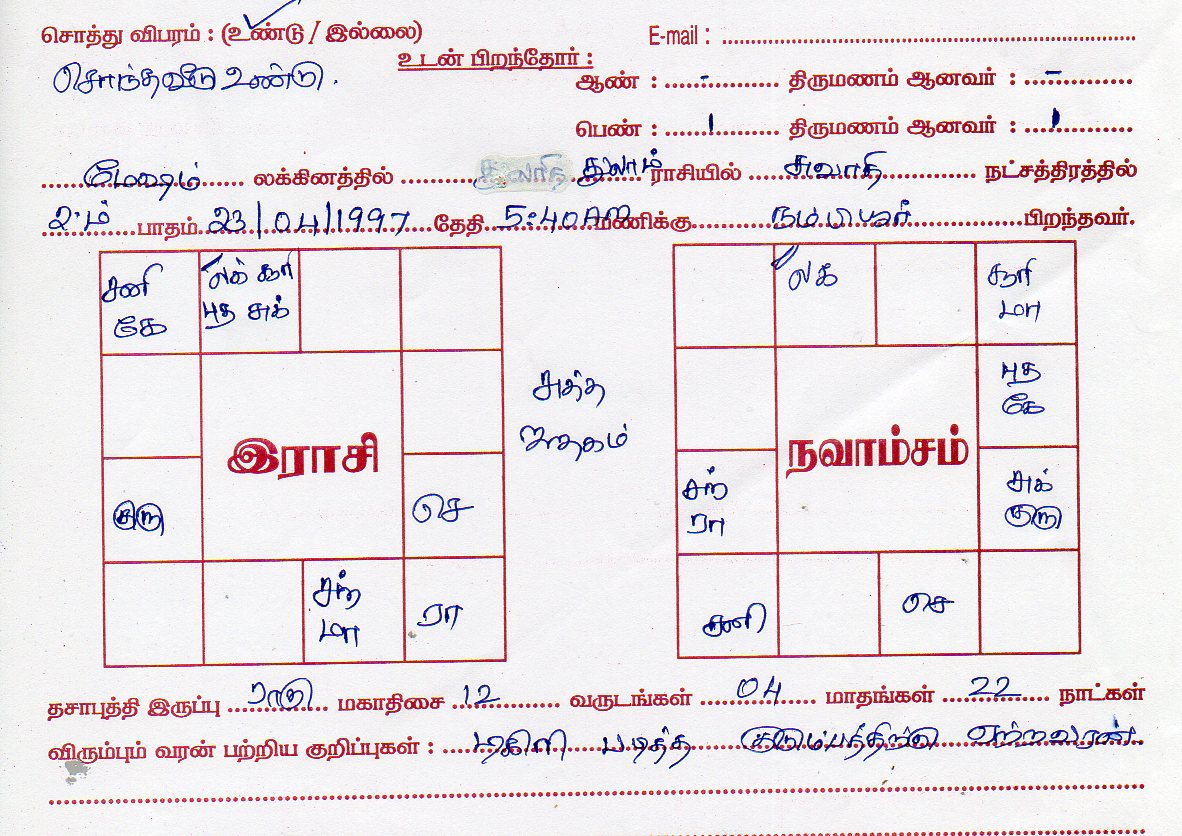 சொத்து விபரம் : (உண்டு / இல்லை)
E-mail : 
சொந்தவீடு உண்டு.
உடன் பிறந்தோர் :
ஆண் : - திருமணம் ஆனவர் : -
பெண் : 1 திருமணம் ஆனவர் : 1
மேஷம் லக்கினத்தில் துலாம் ராசியில் சுவாதி நட்சத்திரத்தில்
2ம் பாதம் 23/04/1997 தேதி 5:40AM மணிக்கு பிறந்தவர்.
சனி
கே
லக் சூரி
புத சுக்
குரு
இராசி
செ
சந்
மா
ரா
சுத்த
ஜாதகம்
லக்
சூரி
மா
புத
கே
நவாம்சம்
சந்
ரா
சுக்
குரு
சனி
செ
தசாபுத்தி இருப்பு ராகு மகாதிசை 12 வருடங்கள் 04 மாதங்கள் 22 நாட்கள்
விரும்பும் வரன் பற்றிய குறிப்புகள் : படித்த குடும்பத்திற்கு ஏற்றவரண்